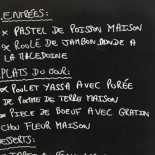 ENTRÉES:
* PASTEL DE POISSON MAISON
* ROULÉ DE JAMBON BLONDE A
LA MACEDOINE
PLATS DU JOUR:
* POULET YASSA AVEC PURÉE
DE POMME DE TERRE MAISON
* PIECE DE BOEUF AVEC GRATIN
CHOU FLEUR MAISON
DESSERTS: